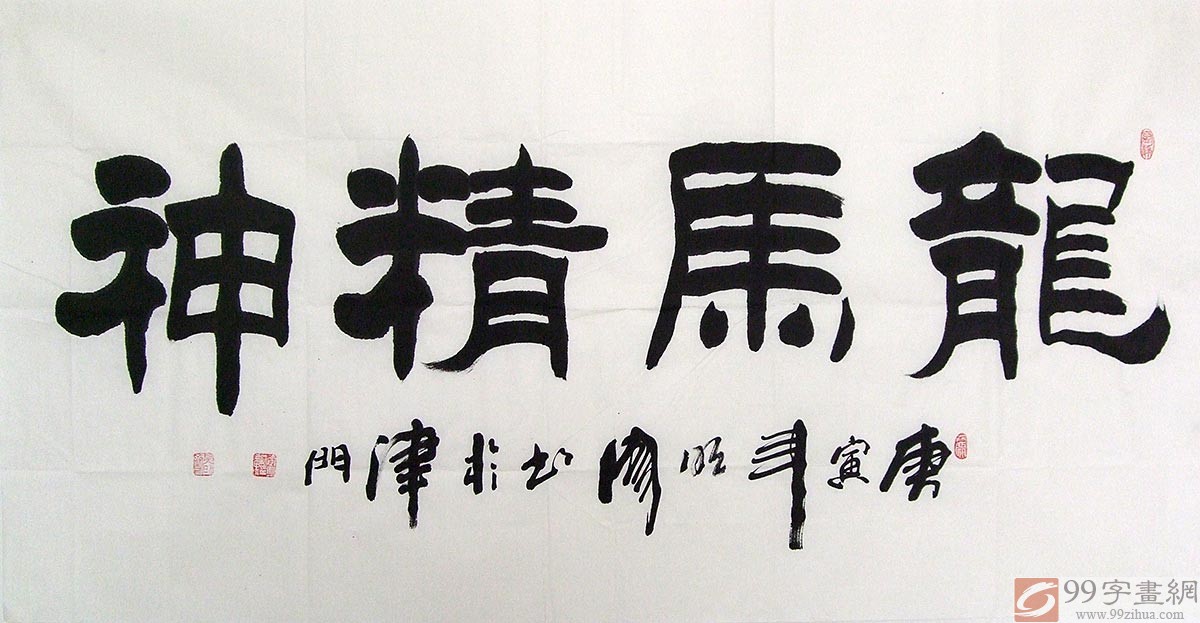 龍馬精神
庚寅年明修书於津門
99字畫網
www.99zihua.com